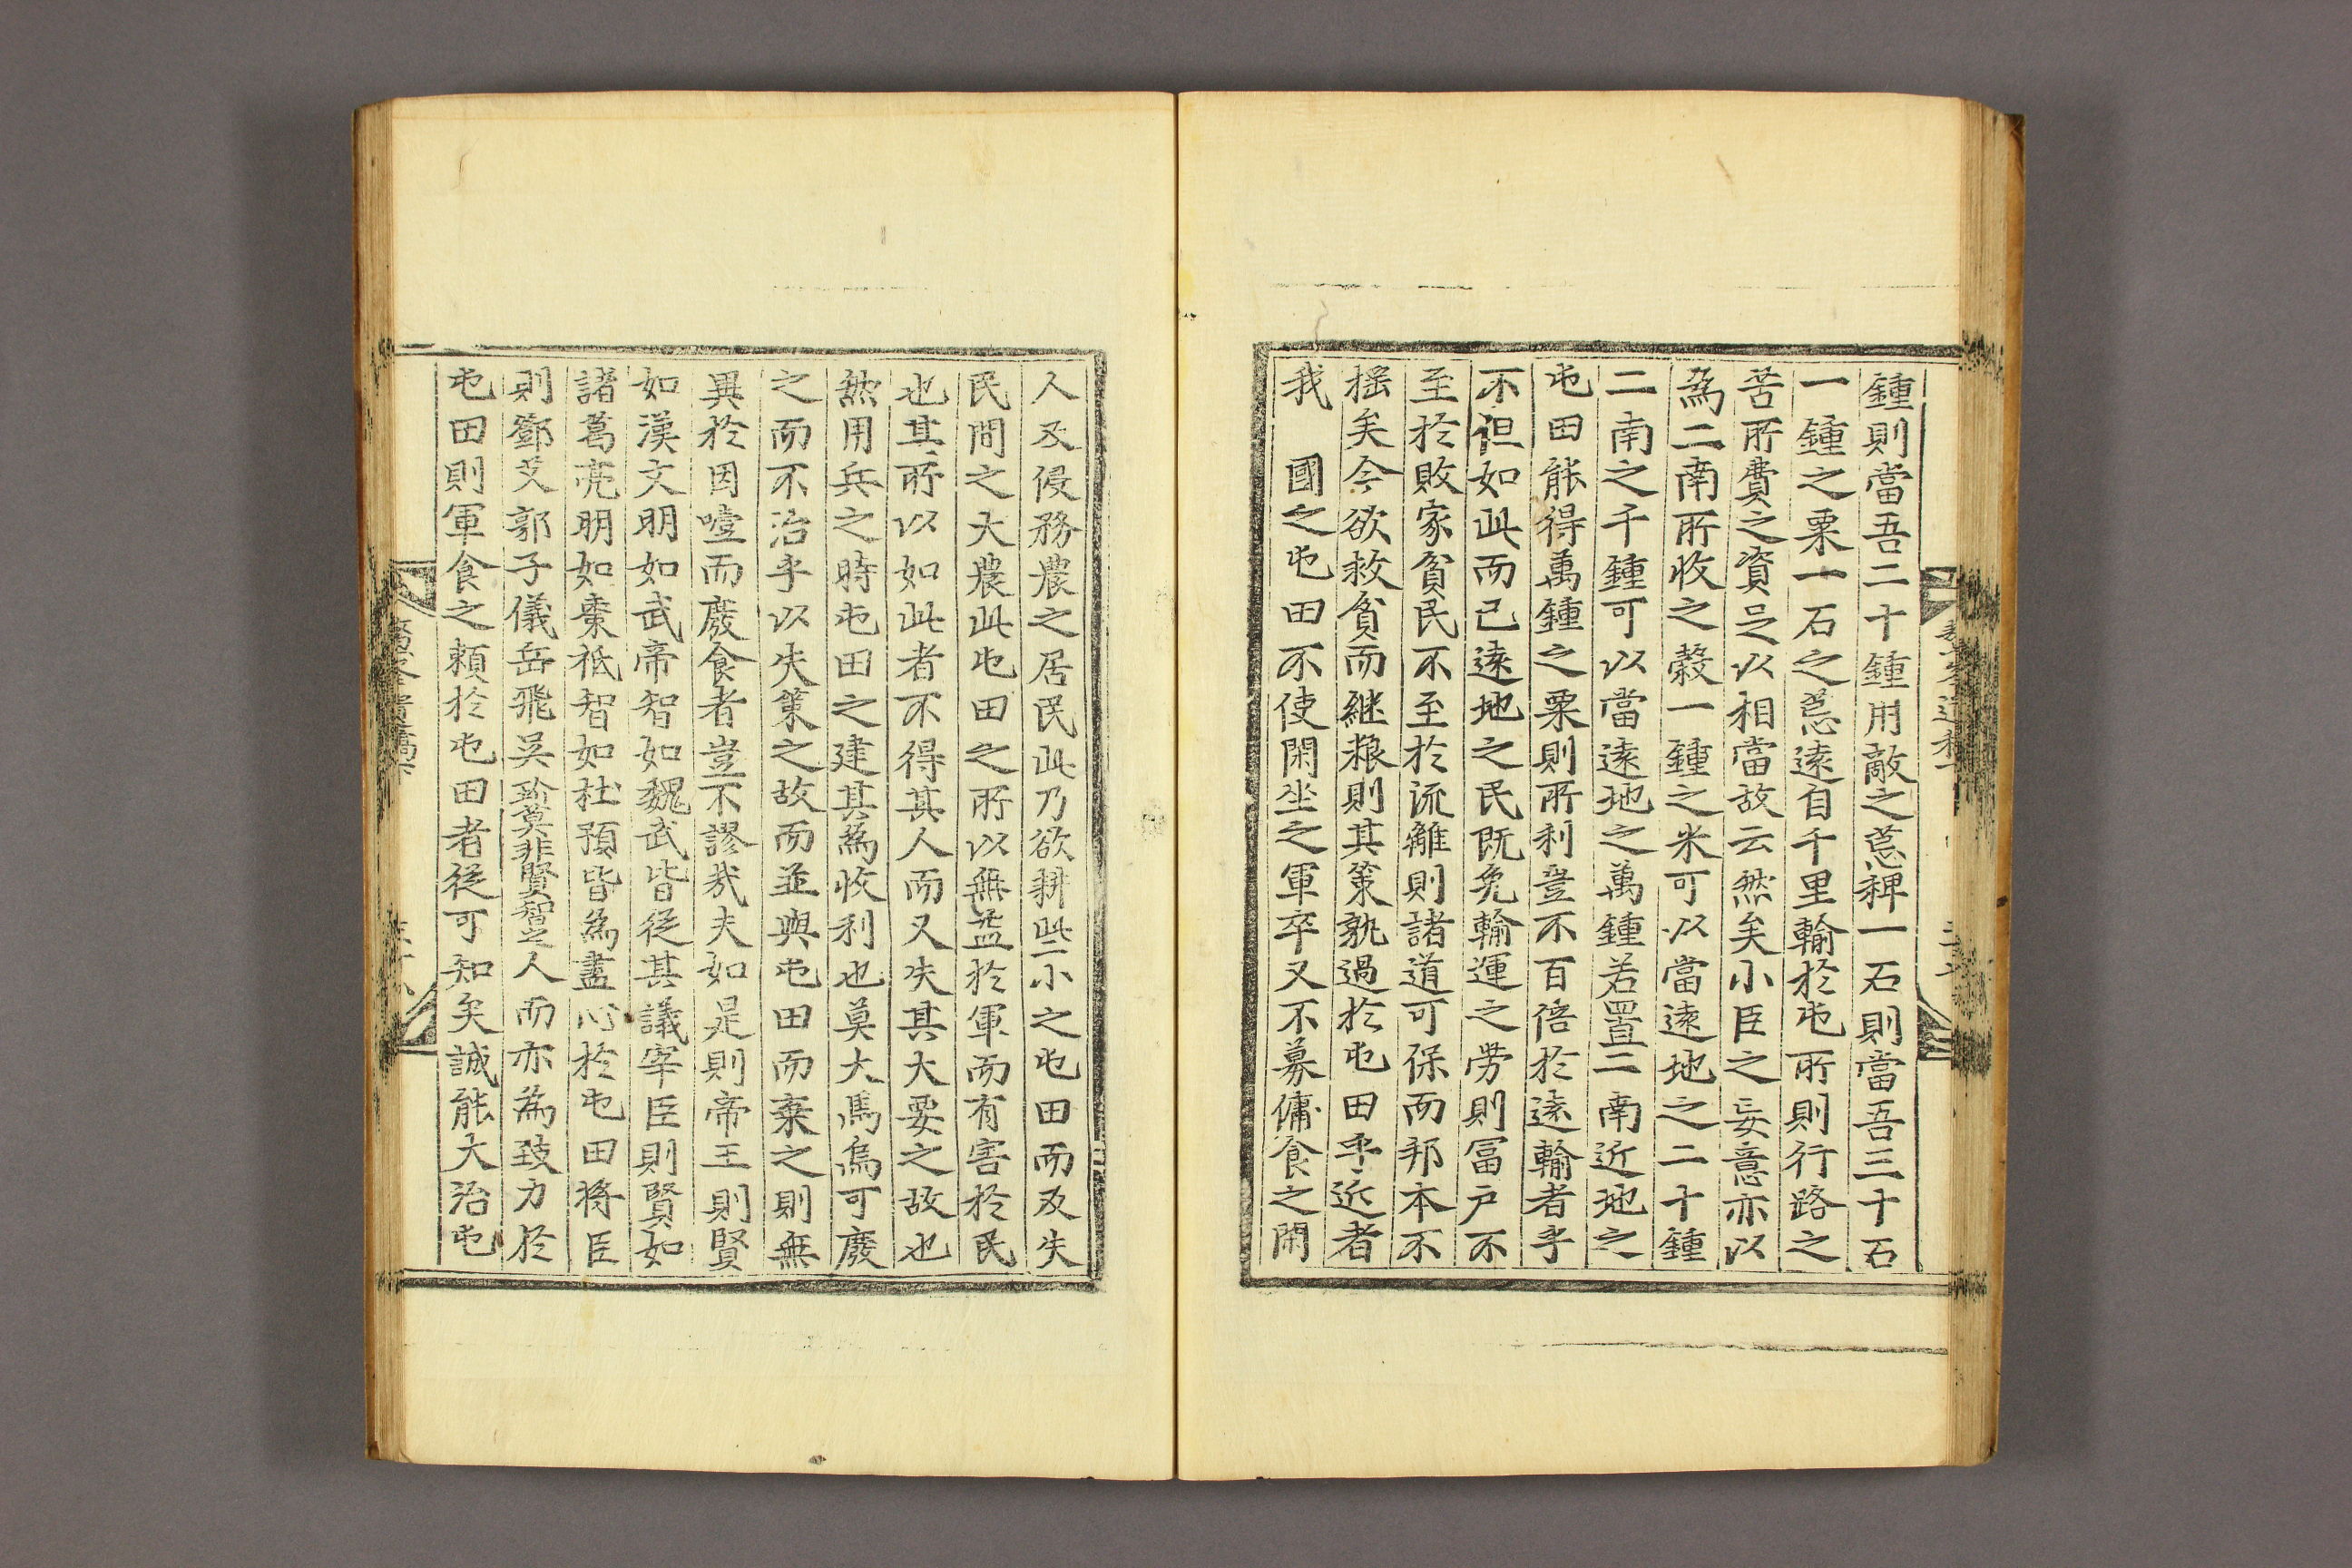 鍾則當吾二十鍾用敵之䓤稗一石則當吾三十石
一鍾之粟一石之䓤遠自千里輸於屯所則行路之
苦所費之資足以相當故云然矣小臣之妄意亦以
爲二南所收之穀一鍾之米可以當遠地之二十鍾
二南之千鍾可以當遠地之萬鍾若置二南近地之
屯田能得萬鍾之粟則所利豈不百倍於遠輸者乎
不但如此而已遠地之民旣免輸運之勞則冨户不
至於敗家貧民不至於流離則諸道可保而邦本不
摇矣今欲救貧而継粮則其策孰過於屯田乎近者
我　國之屯田不使閑坐之軍卒又不募傭食之閑
人及侵務農之居民此乃欲耕些小之屯田而及失
民間之大農此屯田之所以無益於軍而有害於民
也其所以如此者不得其人而又失其大要之故也
然用兵之時屯田之建其爲收利也莫大焉烏可廢
之而不治乎以失策之故而並與屯田而棄之則無
異於因噎而廢食者豈不謬哉夫如是則帝王則賢
如漢文明如武帝智如魏武皆從其議宰臣則賢如
諸葛亮明如棗祗智如杜預皆爲盡心於屯田將臣
則鄧艾郭子儀岳飛吳玠莫非賢智之人而亦爲致力於
屯田則軍食之賴於屯田者從可知矣誠能大治屯